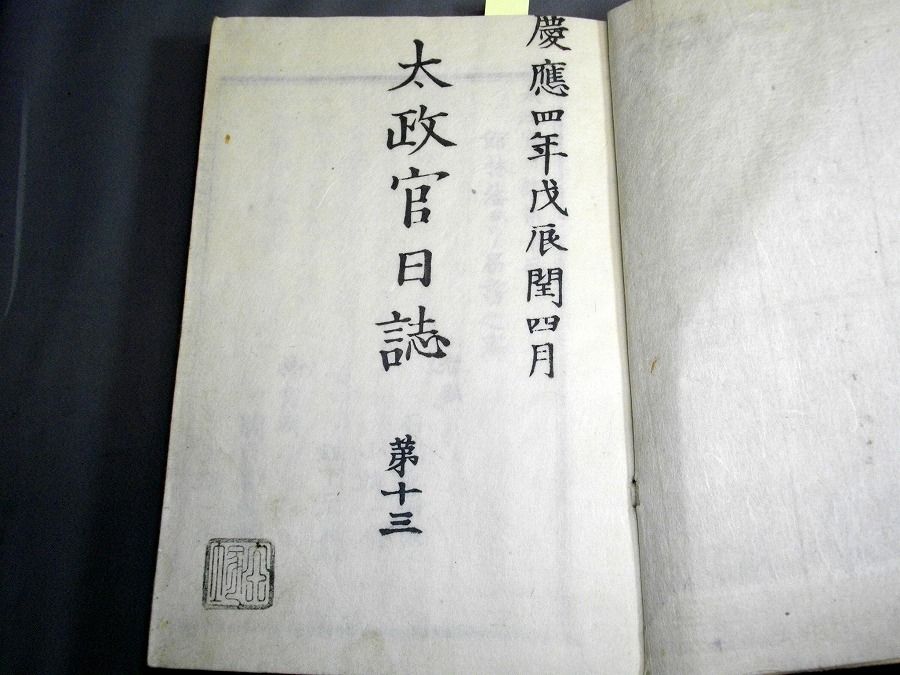 慶應四年戊辰閏四月
太政官日誌
第十三